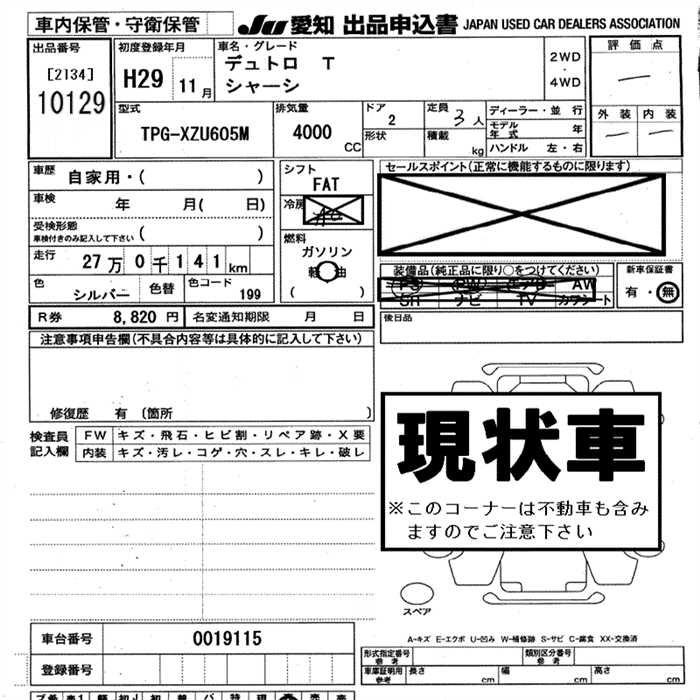 車内保管・守衛保管 JU 愛知 出品申込書 JAPAN USED CAR DEALERS ASSOCIATION
出品番号 初度登録年月 車名・グレード 評価点
[2134] H29 11月 デュトロ T 2WD・4WD
10129 シャーシ
型式 排気量 ドア 定員 ディーラー・並行 外装 内装
TPG-XZU605M 4000 CC 2 3人 モデル年式 年
形状 積載 kg ハンドル 左・右
車歴 自家用・( ) シフト セールスポイント(正常に機能するものに限ります)
FAT
車検 年 月( 日) 冷房
受検形態 ( )
車検付きのみ記入して下さい 燃料
走行 27万0千141km ガソリン 装備品(純正品に限り○をつけてください) 新車保証書
軽油 PS PW エアB AW 有・無
色 シルバー 色替 色コード 199 ( ) SH ナビ TV カワシート
R券 8,820円 名変通知期限 月 日 後日品
注意事項申告欄(不具合内容等は具体的に記入して下さい)
修復歴 有 (箇所 )
検査員 FW キズ・飛石・ヒビ割・リペア跡・X要
記入欄 内装 キズ・汚レ・コゲ・穴・スレ・キレ・破レ
現状車
※このコーナーは不動車も含み
ますのでご注意下さい
スペア
A-キズ E-エクボ U-凹み W-補修跡 S-サビ C-腐食 XX-交換済
車台番号 0019115
形式指定番号 参考 類別区分番号 参考
登録番号 車庫証明用 参考 長さ cm 幅 cm 高さ cm